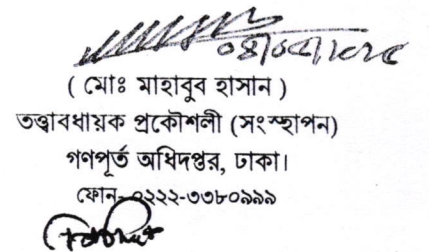 ( মোঃ মাহাবুব হাসান )
তত্ত্বাবধায়ক প্রকৌশলী (সংস্হাপন)
গণপূর্ত অধিদপ্তর, ঢাকা।
ফোন- ০২২২-৩৩৮০৯৯৯